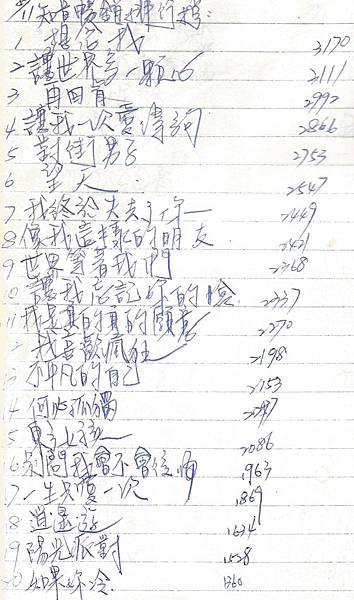 知音暢銷排行榜:
1 想念我 3170
2 讓世界為一顆心 3111
3 再回首 2992
4 讓我一次愛得夠 2866
5 對街男子 2753
6 望天 2547
7 我終於失去了你 2449
8 像我這樣的朋友 2421
9 世界等著我們 2368
10 讓我忘記你的臉 2337
11 我是真的真的願意 2270
我喜歡瘋狂 2198
13 不平凡的自己 2153
14 何必孤獨
5 2086
6 別問我會不會後悔 1963
7 一生只愛一次 1869
8 逍遙遊 1634
19 陽光派對 1528
20 如果你冷 1360